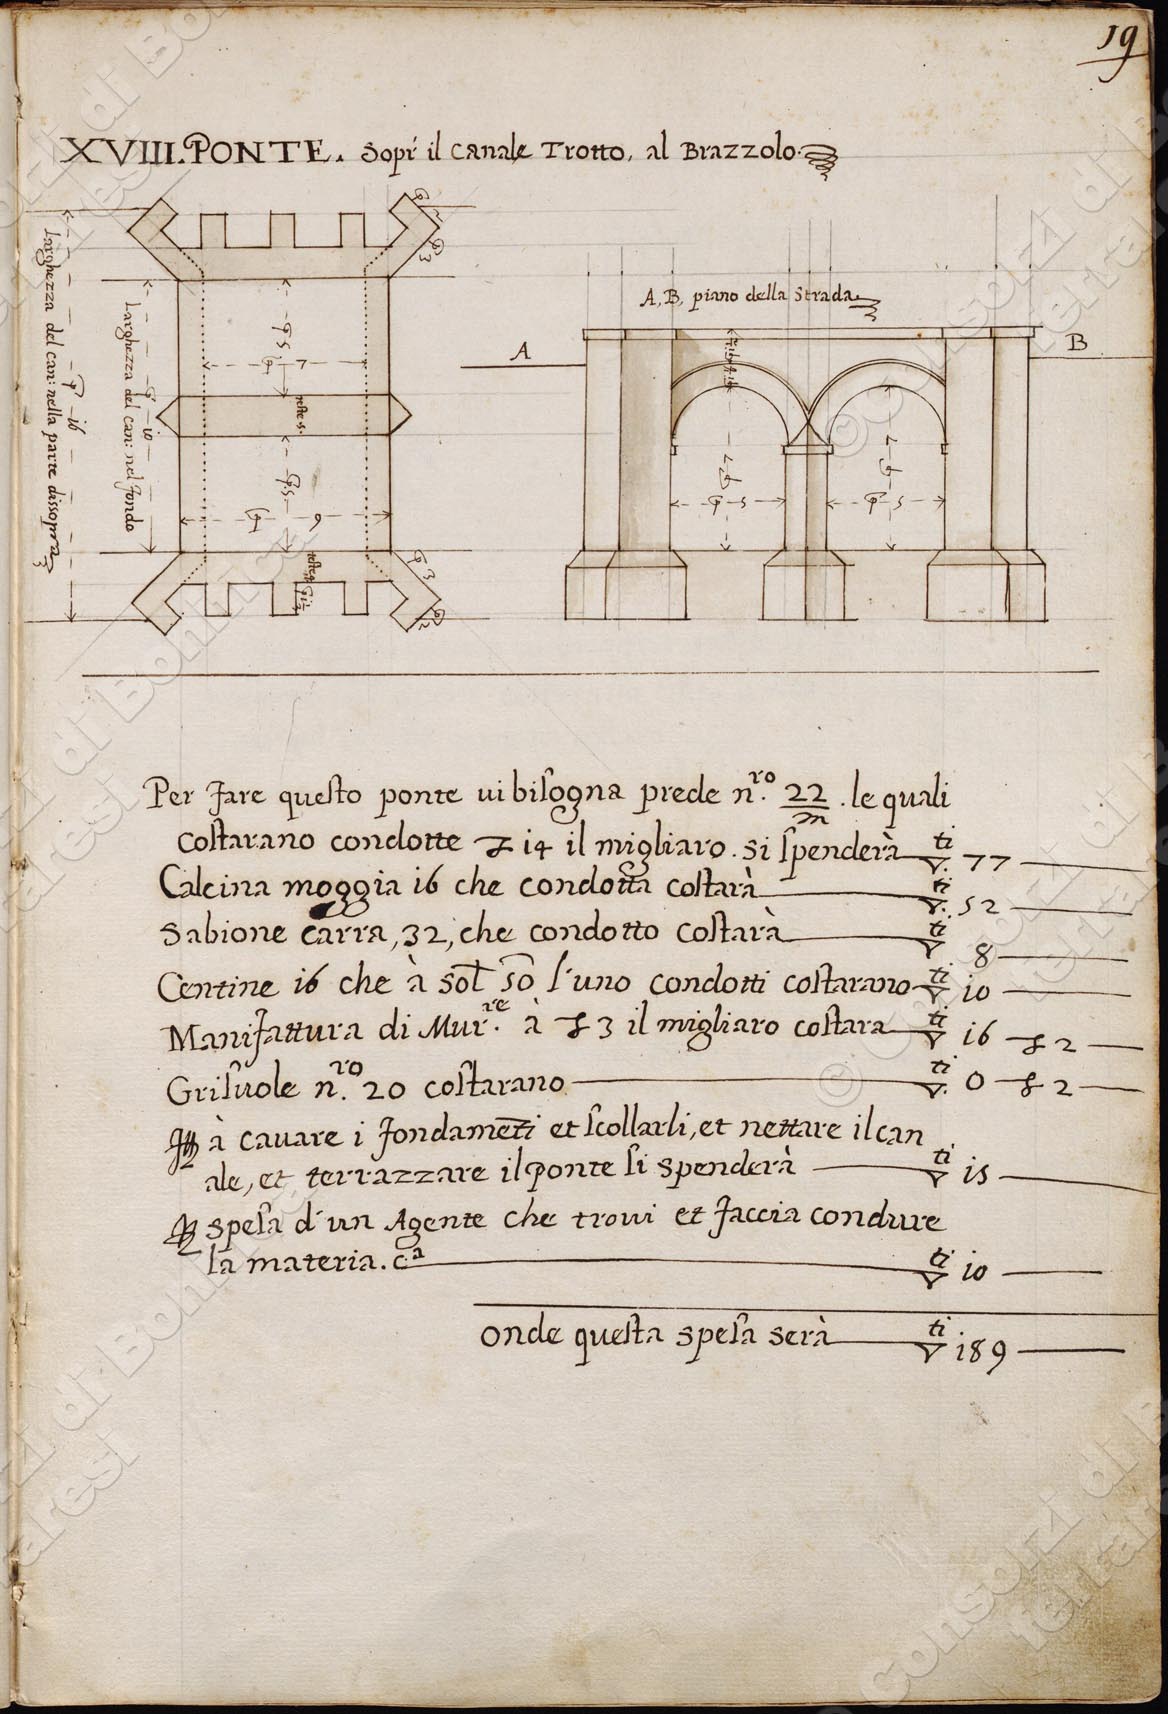 19
XVIII. PONTE. Sopr' il Canale Trotto, al Brazzolo.
Larghezza del can: nella parte dissopra
P 16
Larghezza del can: nel fondo
P 10
P 5
P 7
teste 5.
P 5
P 9
P 3
P 3
P 2
A, B, piano della Strada
A
B
P 5
P 5
Per fare questo ponte vi bisogna prede n.ro 22/m. le quali
costarano condotte £ 14 il migliaro. si spenderà ti ▽. 77
Calcina moggia 16 che condotta costarà ti ▽. 52
Sabione Carra, 32, che condotto costarà ti ▽ 8
Centine 16 che à sol. 50 l'uno condotti costarano ti ▽ 10
Manifattura di Mur.re à £ 3 il migliaro costara ti ▽ 16 £ 2
Grisuole n.ro 20 costarano ti ▽. 0 £ 2
à cavare i fondamẽti et scollarli, et nettare il can
ale, et terrazzare il ponte si spenderà ti ▽ 15
spesa d'un Agente che trovi et faccia condure
la materia. c.a ti ▽ 10
onde questa spesa serà ti ▽ 189
© Consorzi di Bonifica
ferraresi